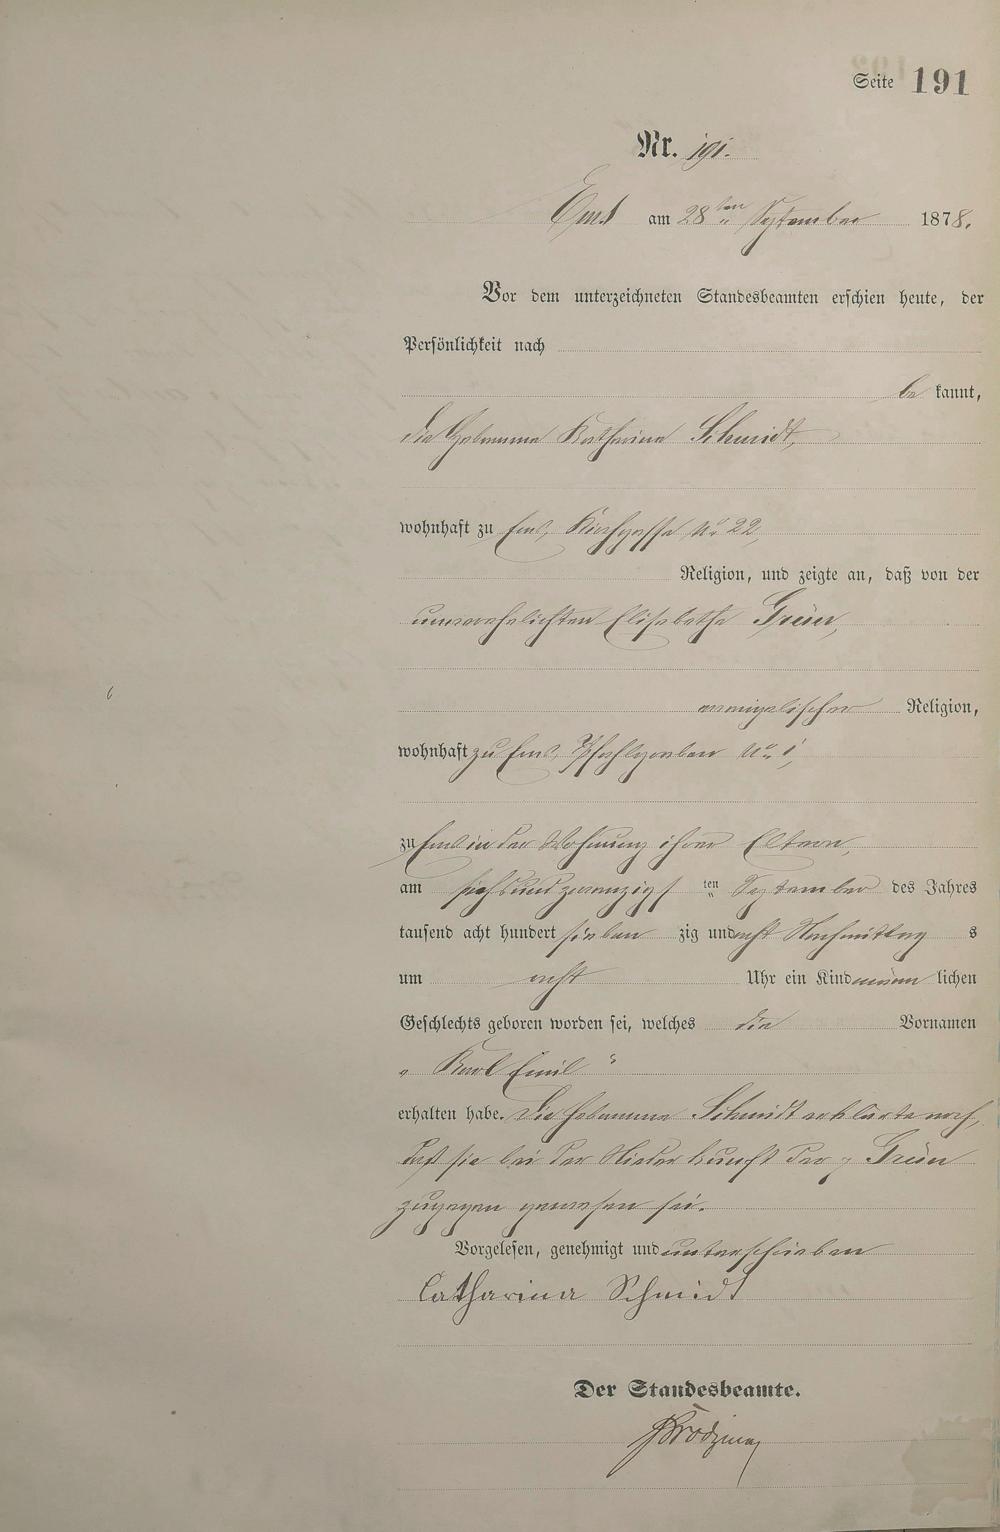 Seite 191
Nr. 191.
Ems am 28ten September 1878.
Vor dem unterzeichneten Standesbeamten erschien heute, der
Persönlichkeit nach
be kannt,
die Hebamme Katharina Schmidt,
wohnhaft zu Ems, Kirchgasse No 22,
Religion, und zeigte an, daß von der
unverehelichten Elisabetha Grün,
evangelischer Religion,
wohnhaft zu Ems, Pfahlgraben No 1,
zu Ems in der Wohnung ihrer Eltern,
am sechsundzwanzigsten September des Jahres
tausend acht hundert sieben zig und acht Nachmittag s
um acht Uhr ein Kind männ lichen
Geschlechts geboren worden sei, welches die Vornamen
„ Karl Emil “
erhalten habe. Die Hebamme Schmidt erklärte noch,
daß sie bei der Niederkunft der Grün
zugegen gewesen sei.
Vorgelesen, genehmigt und unterschrieben
Catharina Schmidt
Der Standesbeamte.